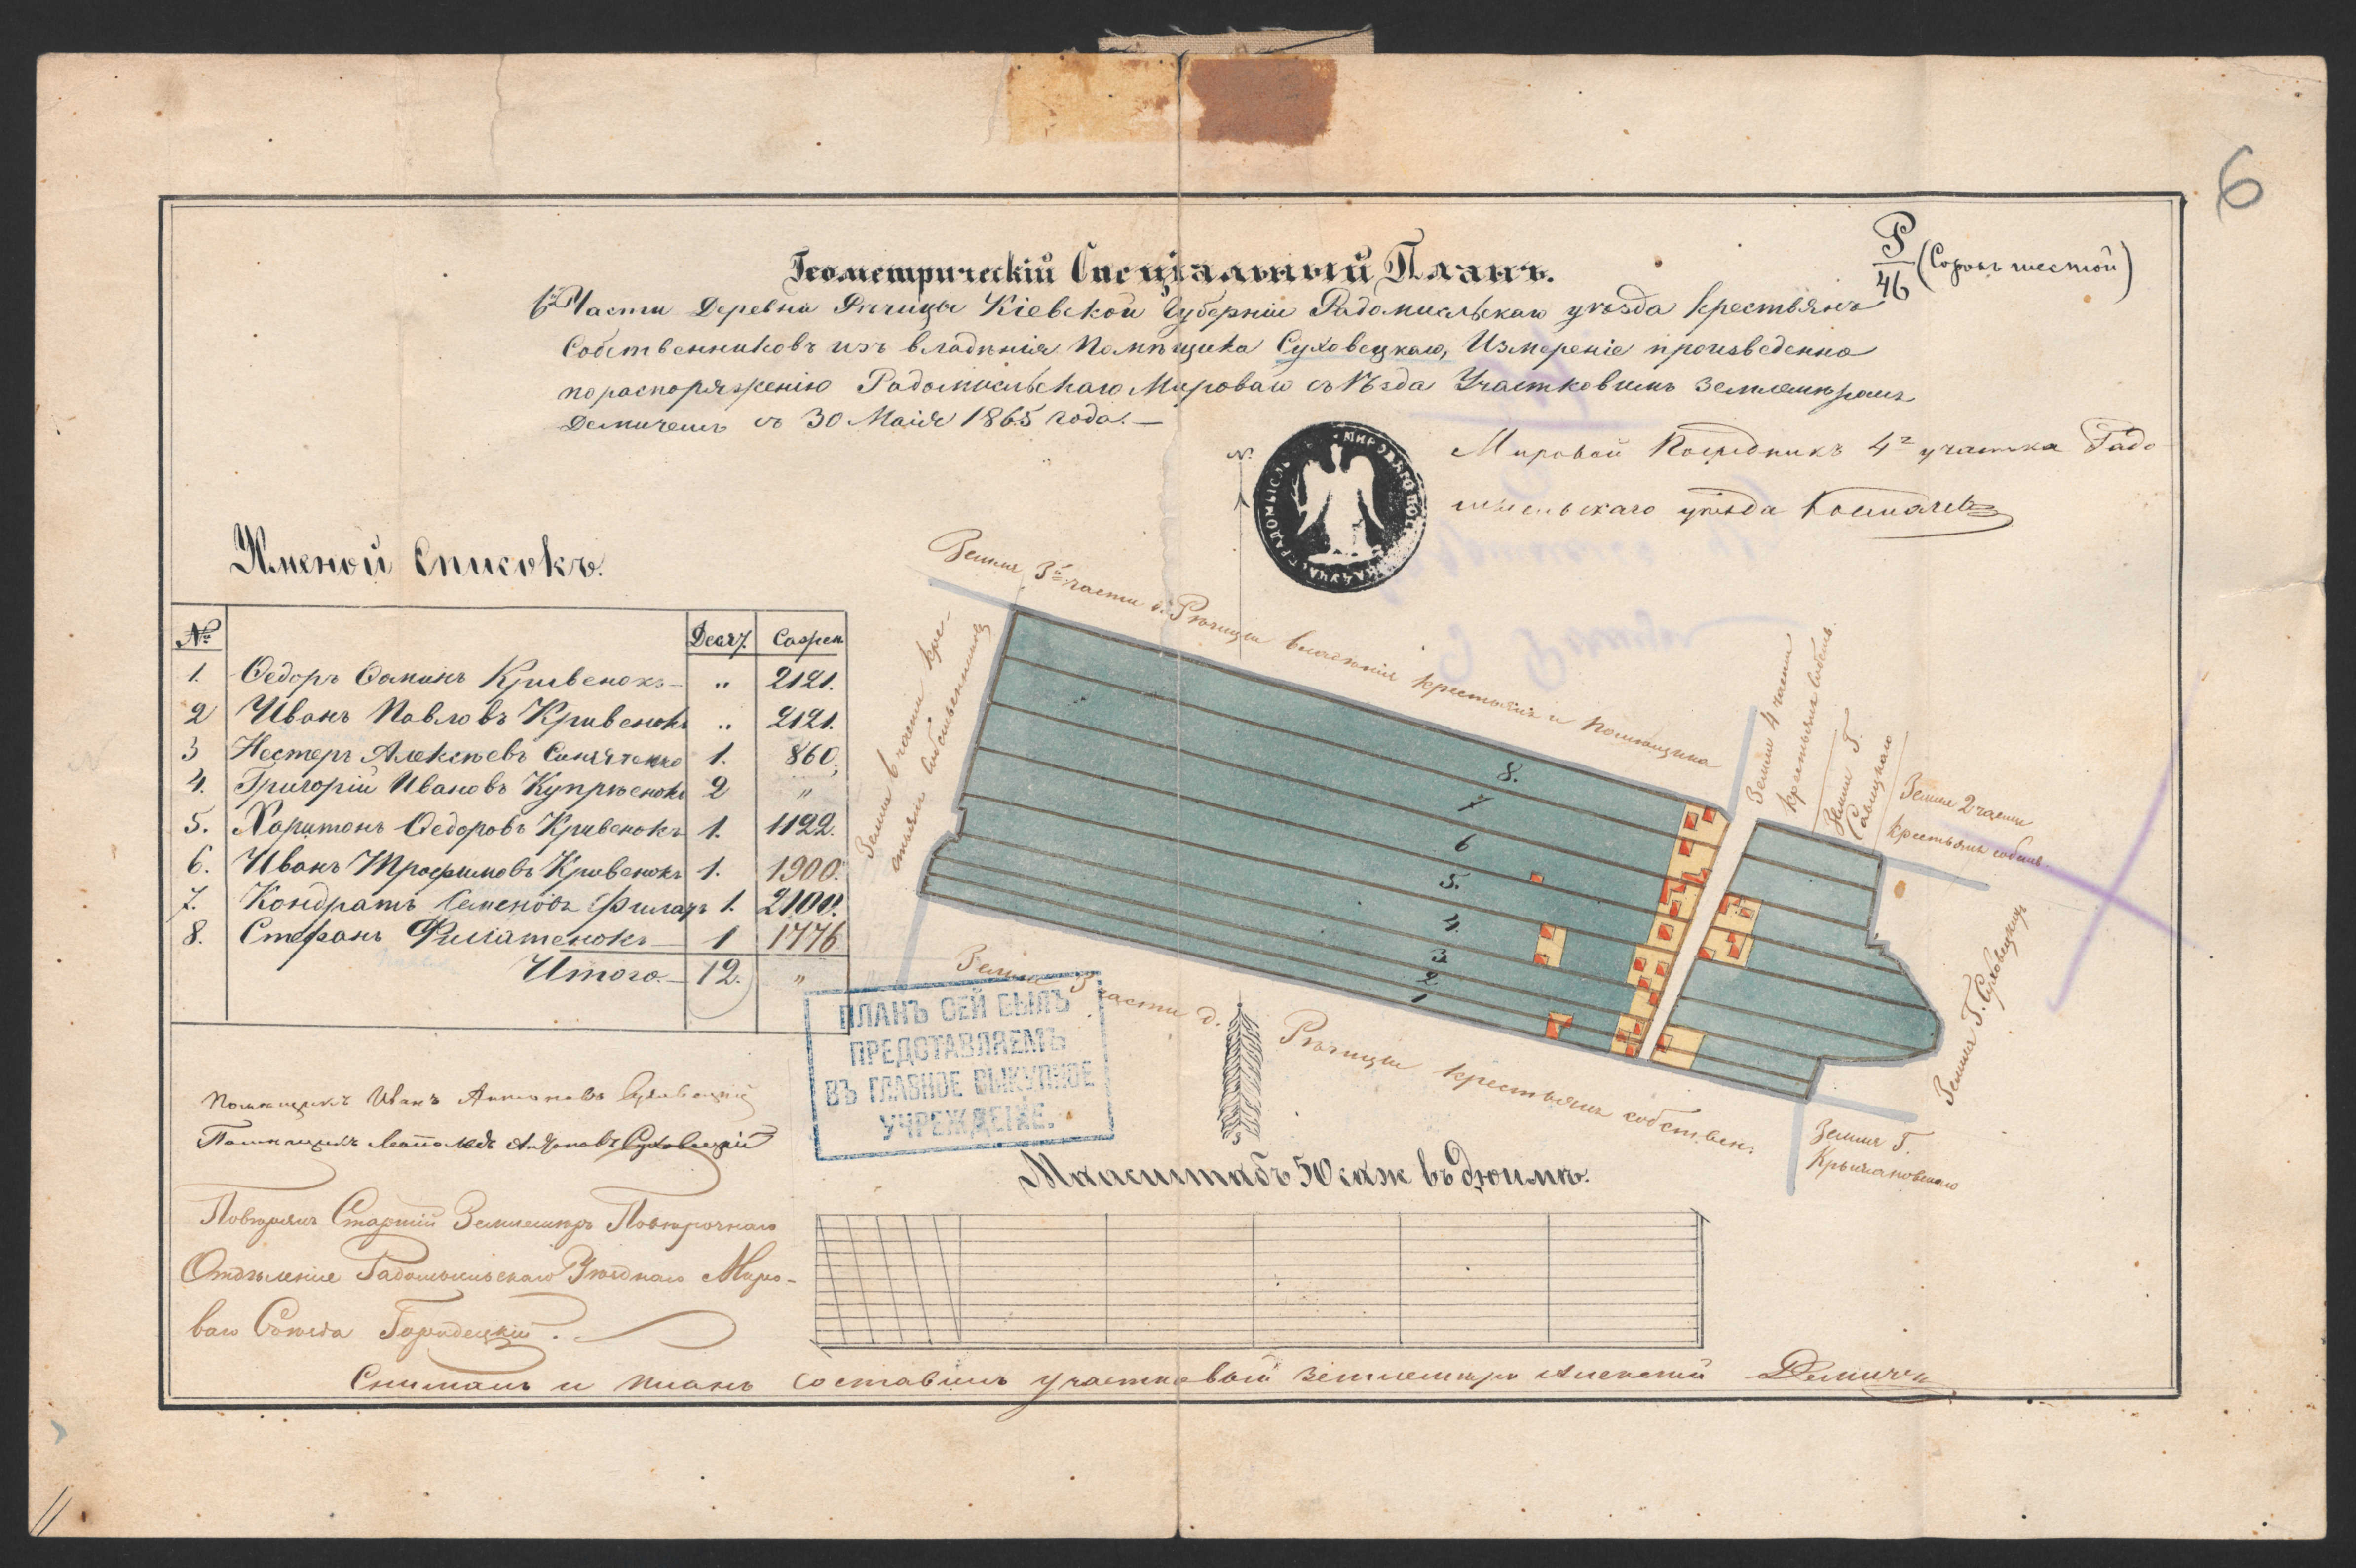 6
Р/46 (Сорокъ шестой)
Геометрическій Спеціальный Планъ.
Части Деревни Рѣчицы Кіевской Губерніи Радомисльскаго уѣзда Крестьянъ
Собственниковъ изъ владѣнія Помѣщика Суховецкаго, Измереніе произведенно
по распоряженію Радомисльскаго Мироваго съѣзда Участковимъ Землемѣромъ
Демичемъ съ 30 Маія 1865 года.—
Мировой Посредникъ 4го участка Радо
мысльскаго уѣзда
N.
Именой Списокъ.
№ Десят. Сажен
1. Федоръ Фоминъ Кривенокъ — „ 2121.
2 Иванъ Павловъ Кривенокъ „ 2121.
3 Нестеръ Алексѣевъ 1. 860.
4. Григорій Ивановъ Купрѣенокъ 2 „
5. Харитонъ Федоровъ Кривенокъ 1. 1122.
6. Иванъ Трофимовъ Кривенокъ 1. 1900.
7. Кондратъ Семеновъ 1. 2100.
8. Стефанъ Филатенокъ — 1 1776
Итого.— 12. „
Земля 3й части д. Рѣчицы владѣнія крестьянъ и помѣщика
Земля 6 части кре-
стьянъ собственниковъ
Земля 4 части
крестьянъ собств.
Земля Г.
Савицкаго
Земля 2 части
крестьянъ собств.
Земля Г. Суховецкаго
8.
7
6
5.
4.
3
2
1
Земля 3 части д. Рѣчицы крестьянъ собствен.
Земля Г.
Крыжановскаго
S
ПЛАНЪ СЕЙ БЫЛЪ
ПРЕДСТАВЛЯЕМЪ
ВЪ ГЛАВНОЕ ВЫКУПНОЕ
УЧРЕЖДЕНІЕ.
Помѣщикъ Иванъ Антоновъ Суховецкій
Помѣщикъ Леопольдъ Антоновъ Суховецкій
Масштабъ 50 саж въ дюймѣ.
Повѣрялъ Старшій Землемѣръ Повѣрочнаго
Отдѣленіе Радомысльскаго Уѣзднаго Миро-
ваго Съѣзда Городецкій.
Снималъ и планъ составилъ участковый землемѣръ Алексѣй Демичъ
11